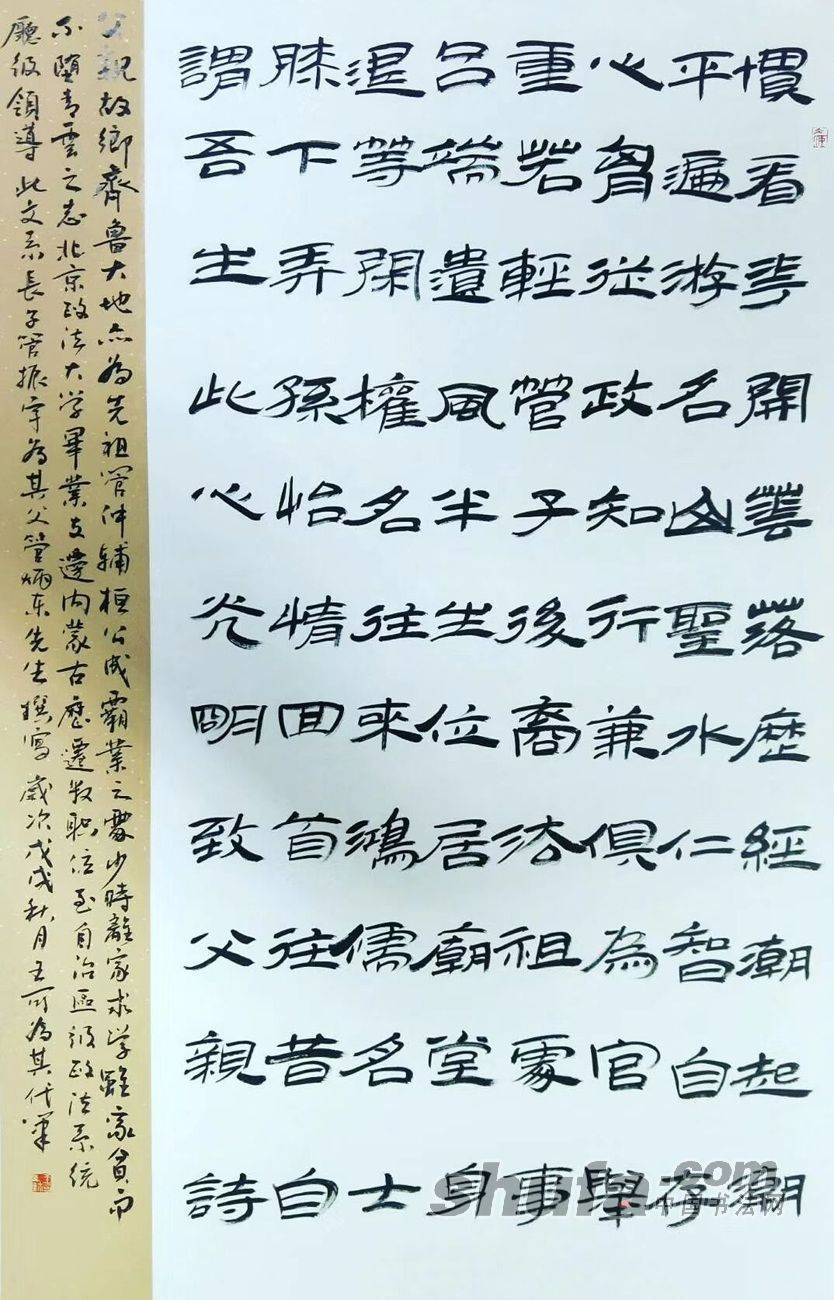 慣看花開雲落歷經潮起潮
平遍游名山聖水仁智自存
心胷從政知行兼俱為官舉
重若輕管子後裔法祖處事
呂端遺風半生位居廟堂身
退等閑權名往來鴻儒名士
膝下弄孫怡情回首往昔自
謂吾生此心光明致父親詩
父親故鄉齊魯大地亦為先祖管仲輔桓公成霸業之處少時離家求学雖家貧而
不墮青雲之志北京政法大学畢業支邊内蒙古歷遷数職位至自治區级政法系统
廳级領導此文系長子管振宇為其父管炳东先生撰寫歲次戊戌秋月王可為其代筆
shufa.com
中国书法网